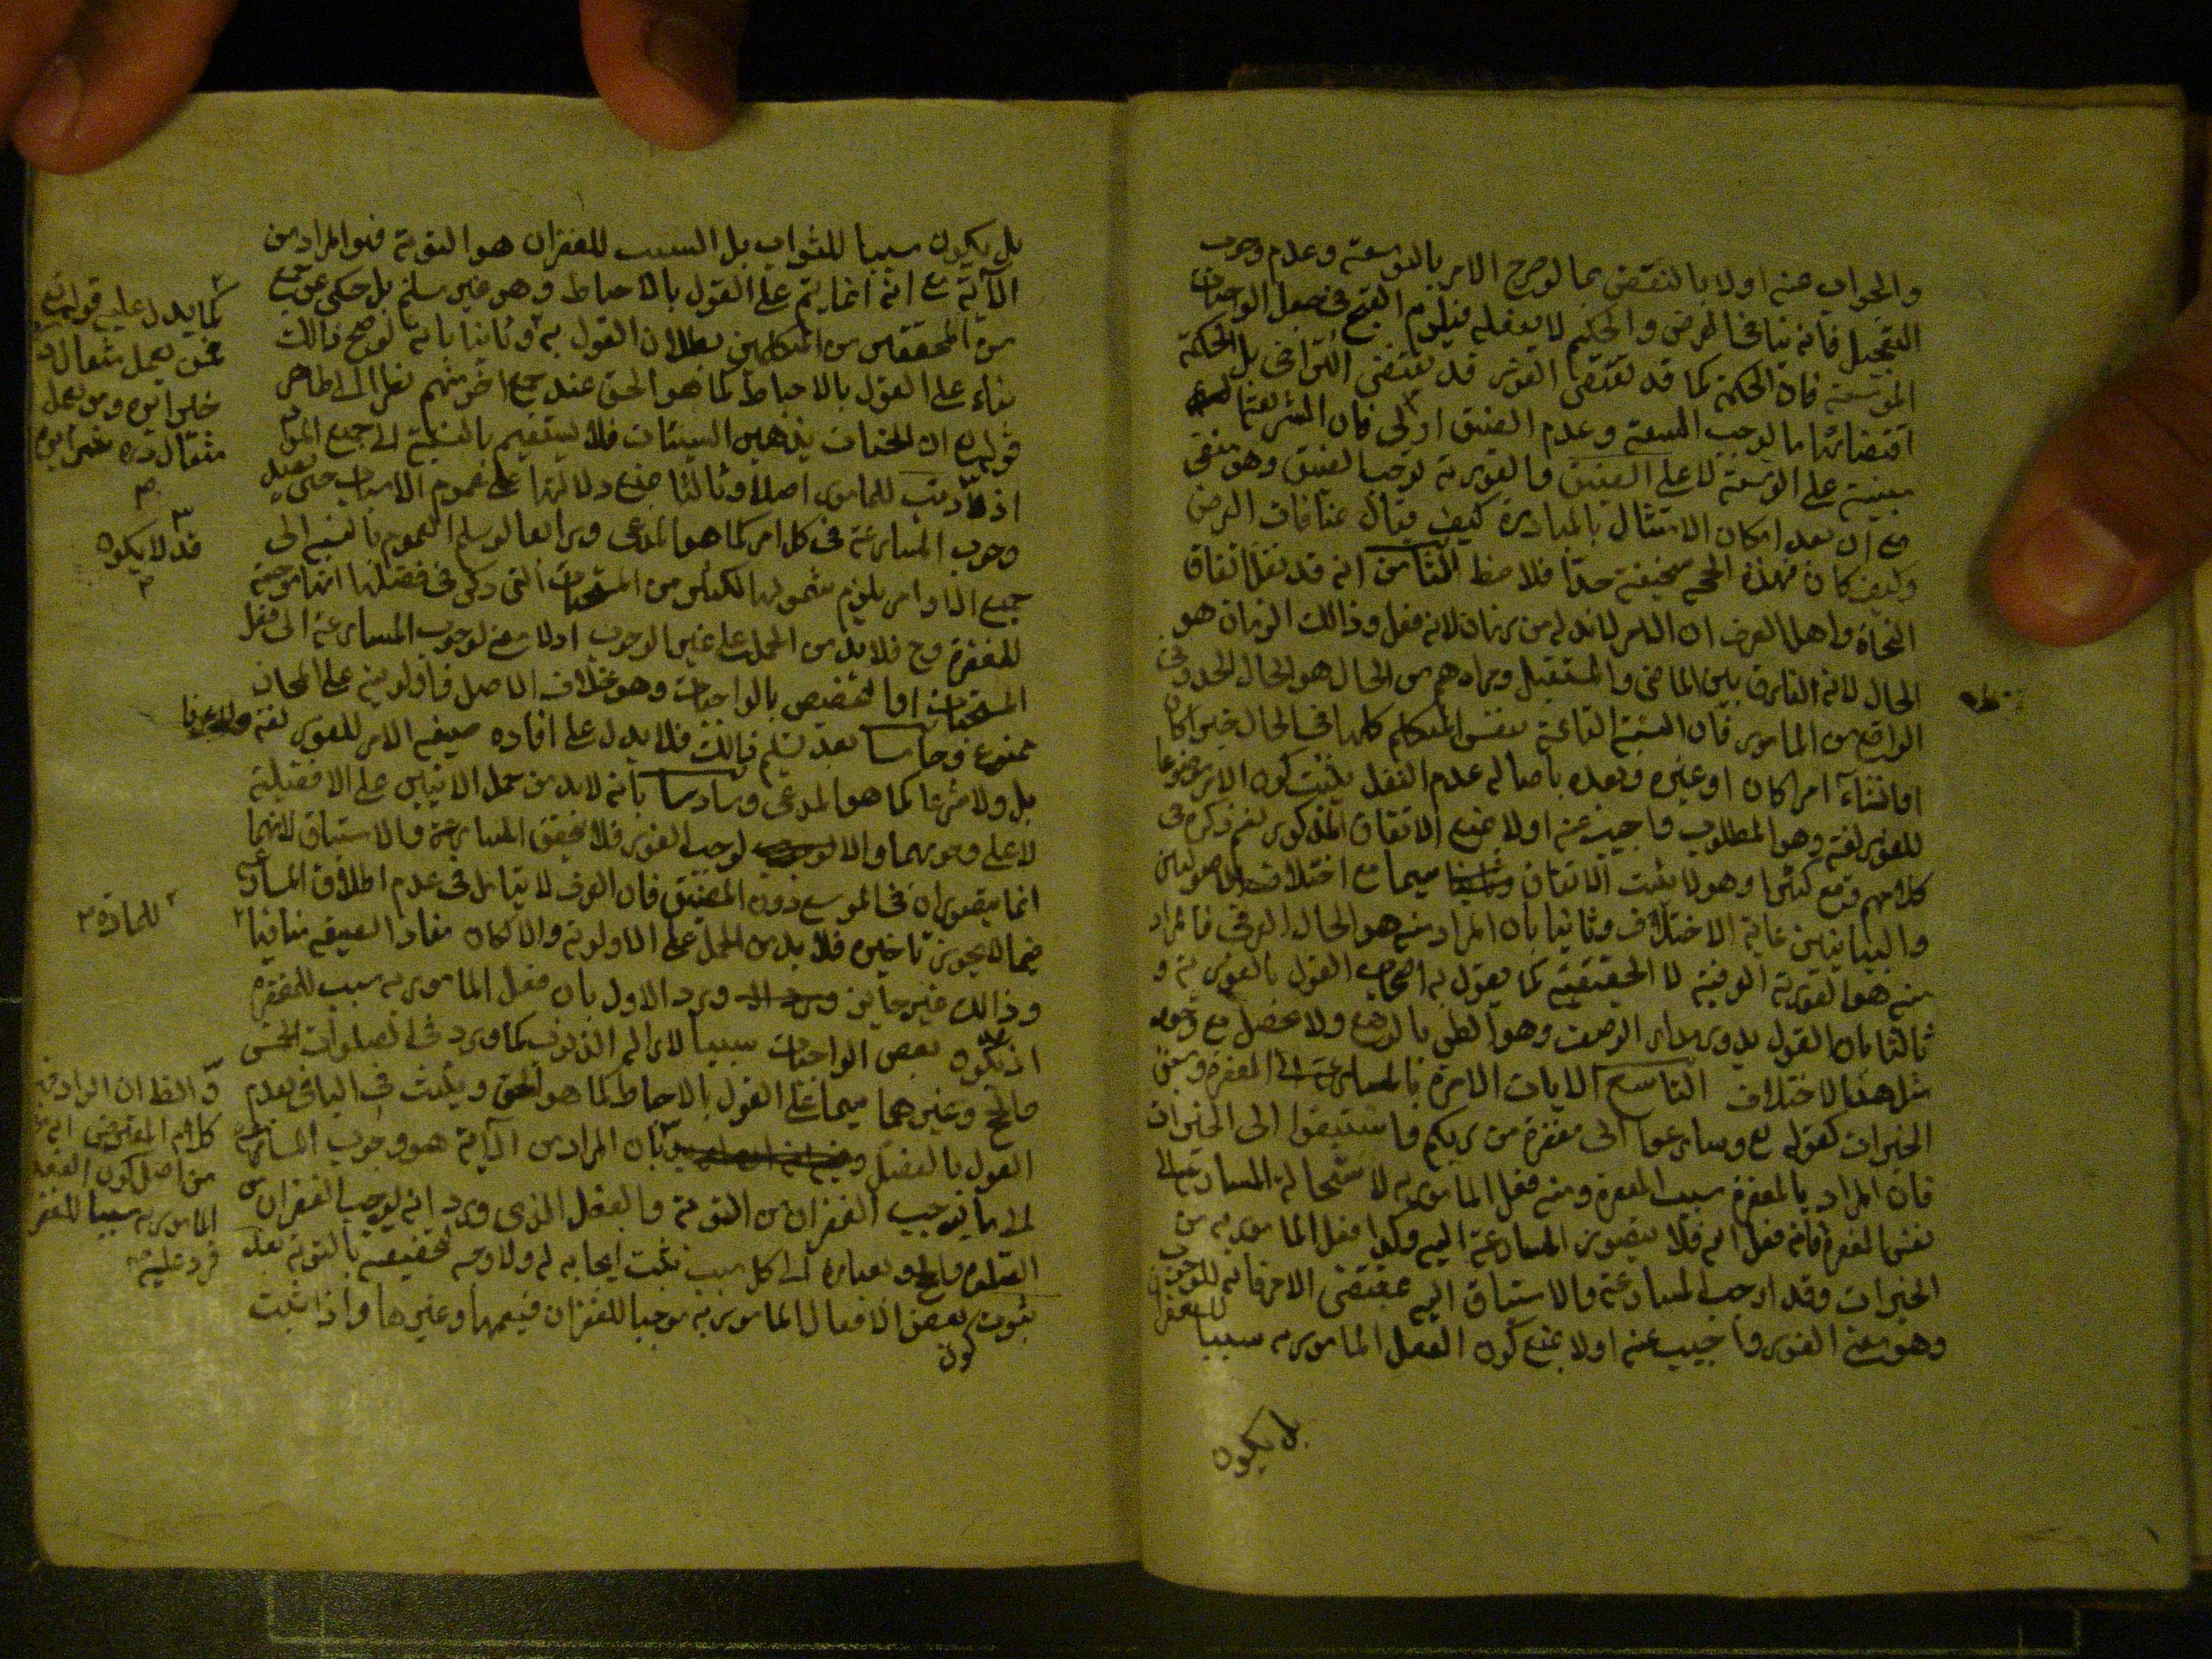 والجواب عنه اولا بالنقض بما لو صرح الامر بالتوسعة وعدم وجوب
التعجيل فانه ينافي الغرض والحكيم لا يفعله فيلزم القبح في جعل الواجبات
الموسعة فان الحكمة كما قد تقتضي الفور قد تقتضي التراخي بل الحكمة
اقتضائها ما يوجب السعة وعدم الضيق اولى فان الشريعة
مبنية على التوسعة لا على الضيق والفورية توجب الضيق وهو منفي
مع ان بعد امكان الامتثال بالمبادرة كيف يقال بمنافات الغرض
وكيف كان فهذه الحجج سخيفة جدا فلاحظ الثامن انه قد نقل اتفاق
النحاة واهل العرف ان الامر لابد له من زمان لانه فعل وذالك الزمان هو
الحال لانه الفارق بين الماضي والمستقبل ومرادهم من الحال هو الحال الحدوثي
الواقع من المامور فان النسبة القائمة بنفس المتكلم كلها في الحال خبرا كان
او انشاء امرا كان او غيره وبعده باصالة عدم النقل يثبت كون الامر موضوعا
للفور لغة وهو المطلوب واجيب عنه اولا بمنع الاتفاق المذكور نعم ذكره في
كلامهم وقع كثيرا وهو لا يثبت الاتفاق سيما مع اختلاف الاصوليين
والبيانيين غاية الاختلاف وثانيا بان المراد منه هو الحال العرفي فالمراد
منه هو الفورية العرفية لا الحقيقية كما يقول به اصحاب القول بالفورية و
ثالثا بان القول يدور مدار الوصف وهو الظن بالوضع ولا يحصل مع وجود
مثل هذا الاختلاف التاسع الايات الامرة بالمسارعة الى المغفرة وسبق
الخيرات كقوله تع وسارعوا الى مغفرة من ربكم فاستبقوا الى الخيرات
فان المراد بالمغفرة سبب المغفرة ومنه فعل المامور به لاستحالة المسارعة الى
نفس المغفرة فانه فعل الله فلا يتصور المسارعة اليه وكذا فعل المامور به من
الخيرات وقد اوجب المسارعة والاستباق اليه بمقتضى الامر فانه للوجوب
وهو معنى الفور واجيب عنه اولا بمنع كون الفعل المامور به سببا للغفران
بل يكون
بل يكون سببا للثواب بل السبب للغفران هو التوبة فهو المراد من
الآية مع انه انما يتم على القول بالاحباط وهو غير مسلم بل حكى عن جمع
من المحققين من المتكلمين بطلان القول به وثانيا بانه لو صح ذالك
بناء على القول بالاحباط كما هو الحق عند جمع اخر منهم نظرا الى ظاهر
قوله ان الحسنات يذهبن السيئات فلا يستقيم بالنسبة الى جميع الموارد
اذ لا ذنب للمامور اصلا وثالثا بمنع دلالتها على عموم الاسباب حتى يفيد
وجوب المسارعة في كل امر كما هو المدعى ورابعا لو سلم العموم بالنسبة الى
جميع الاوامر يلزم شمولها لكثير من المستحبات التي ذكر في فضلها انها موجبة
للمغفرة وح فلابد من الحمل على غير الوجوب اذ لا معنى لوجوب المسارعة الى فعل
المستحبات اما تخصيص بالواجبات وهو خلاف الاصل فاولويته على المجاز
ممنوع وخامسا بعد تسليم ذالك فلا يدل على افادة صيغة الامر للفور لغة ولا عرفا
بل ولا شرعا كما هو المدعى وسادسا بانه لابد من حمل الايتين على الافضلية
لا على وجوبهما والا لوجب الفور فلا يتحقق المسارعة والاستباق لانهما
انما يتصوران في الموسع دون المضيق فان العرف لا يتامل في عدم اطلاق المسارعة
فيما لا يجوز تاخيره فلابد من الحمل على الاولوية والا كان مفاد الصيغة منافيا
وذالك غير جايز ورد الاول بان فعل المامور به سبب للمغفرة
اذ يكون بعض الواجبات سببا لازالة الذنوب كما ورد في الصلوات الخمس
والحج وغيرهما سيما على القول بالاحباط كما هو الحق ويثبت في الباقي بعدم
القول بالفصل بان المراد من الآية هو وجوب المسارعة
الى ما يوجب الغفران من التوبة والفعل الذي ورد انه يوجب الغفران من
الصلوة والحج وبعبارة الى كل سبب يثبت ايجابه له ولا وجه لتخصيصه بالتوبة بعد
ثبوت بعض الافعال المامور به موجبا للغفران فيعمها وغيرها واذا ثبت
كون
كما يدل عليه قوله تع
فمن يعمل مثقال ذرة
خيرا يره ومن يعمل
مثقال ذرة شرا يره
قد لا يكون
للمادة
والظ ان المراد في
كلام المعترض
من اصل كون الفعل
المامور به سببا للمغفرة
فرد عليه